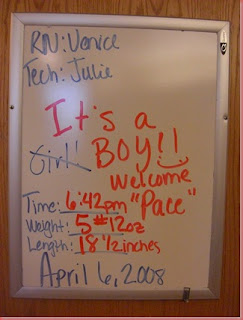 RN: Venice
Tech: Julie
It's a
Girl! BOY!!
Welcome
Time: 6:42pm "Pace"
Weight: 5 # 12oz
Length: 18 1/2 inches
April 6, 2008